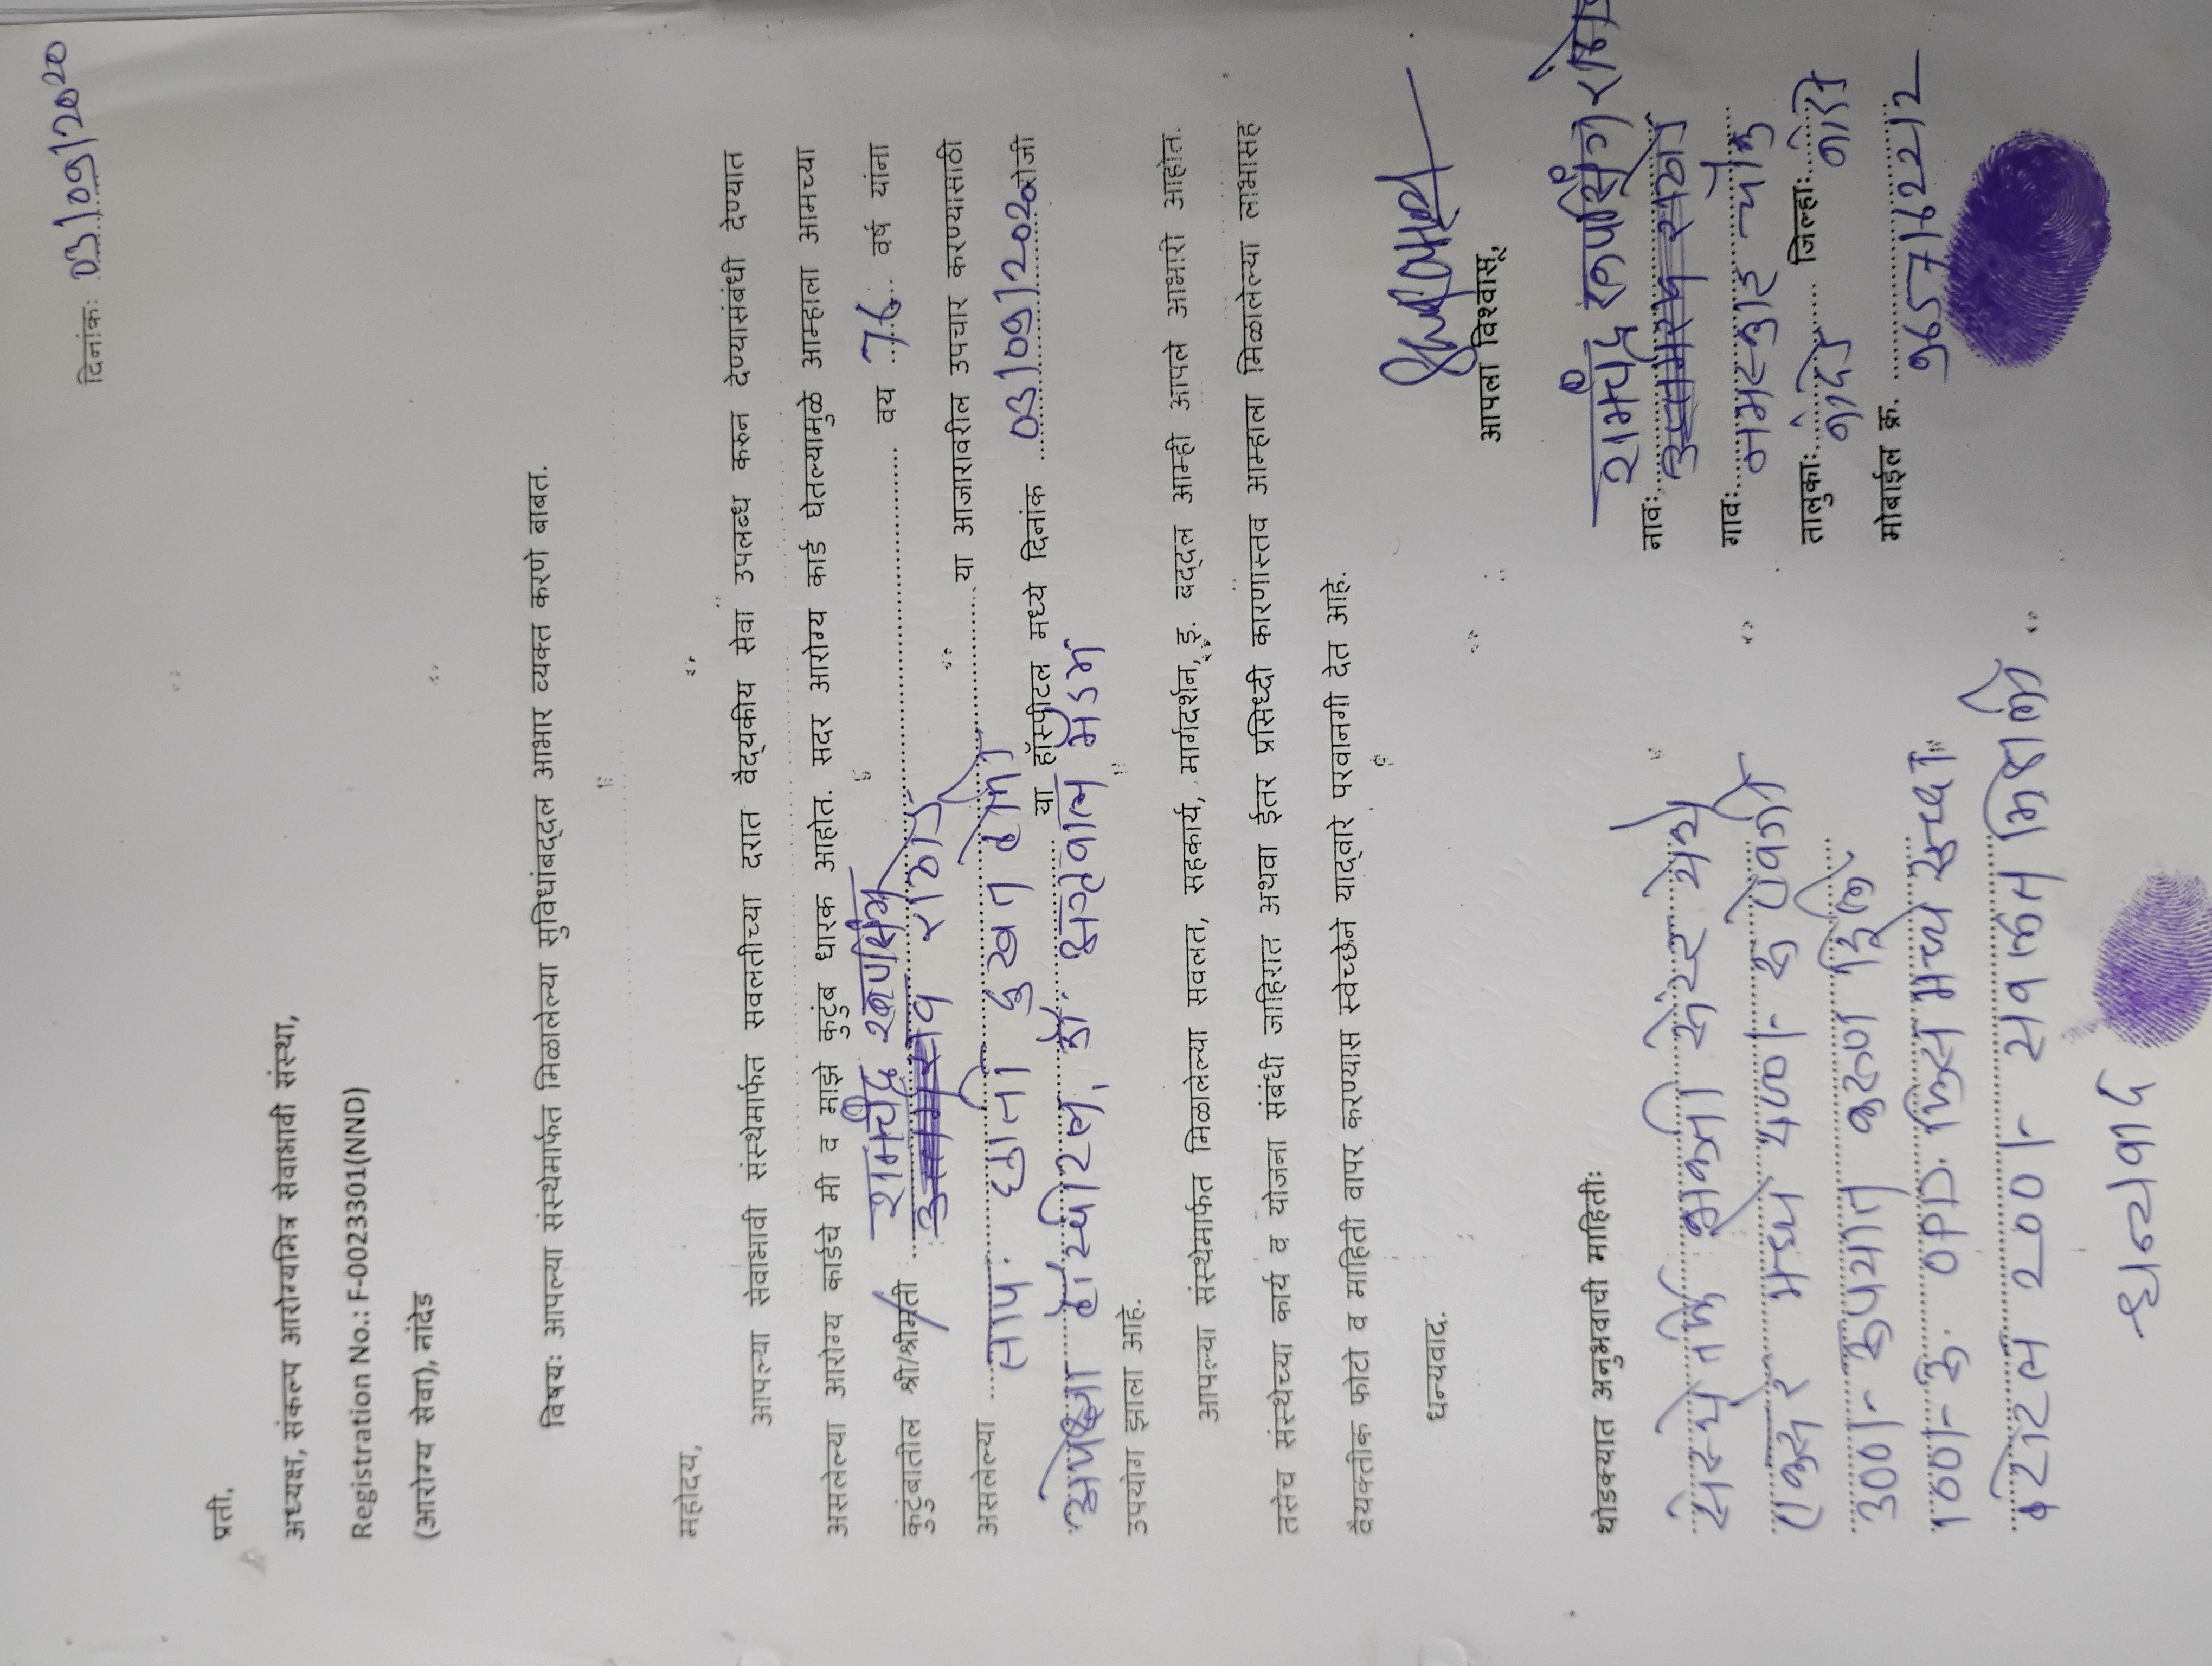 दिनांकः 03/09/2020
प्रती,
अध्यक्ष, संकल्प आरोग्यमित्र सेवाभावी संस्था,
Registration No.: F-0023301(NND)
(आरोग्य सेवा), नांदेड
विषयः आपल्या संस्थेमार्फत मिळालेल्या सुविधांबद्दल आभार व्यक्त करणे बाबत.
महोदय,
आपल्या सेवाभावी संस्थेमार्फत सवलतीच्या दरात वैद्यकीय सेवा उपलब्ध करुन देण्यासंबंधी देण्यात
असलेल्या आरोग्य कार्डचे मी व माझे कुटुंब धारक आहोत. सदर आरोग्य कार्ड घेतल्यामुळे आम्हाला आमच्या
कुटुंबातील श्री/श्रीमती रामचंद्र राठोड वय 76 वर्ष यांना
असलेल्या ताप. छाती दुखत होती या आजारावरील उपचार करण्यासाठी
अपेक्षा हॉस्पीटल, डॉ. मॅडम या हॉस्पीटल मध्ये दिनांक 03/09/2020 रोजी
उपयोग झाला आहे.
आपल्या संस्थेमार्फत मिळालेल्या सवलत, सहकार्य, मार्गदर्शन, इ. बद्दल आम्ही आपले आभारी आहोत.
तसेच संस्थेच्या कार्य व योजना संबंधी जाहिरात अथवा ईतर प्रसिध्दी कारणास्तव आम्हाला मिळालेल्या लाभासह
वैयक्तीक फोटो व माहिती वापर करण्यास स्वेच्छेने याद्वारे परवानगी देत आहे.
धन्यवाद.
आपला विश्वासू,
रामचंद्र
नावः
गावः
तालुकाः जिल्हाः
मोबाईल क्र. 9657162212
थोडक्यात अनुभवाची माहितीः
संस्थे तर्फे सेंटर येथे
400/- रु
300/- रुपयात करुण दिले.
100/- रु. OPD. मध्ये
टोटल 200/- सवलत मिळाले
धन्यवाद